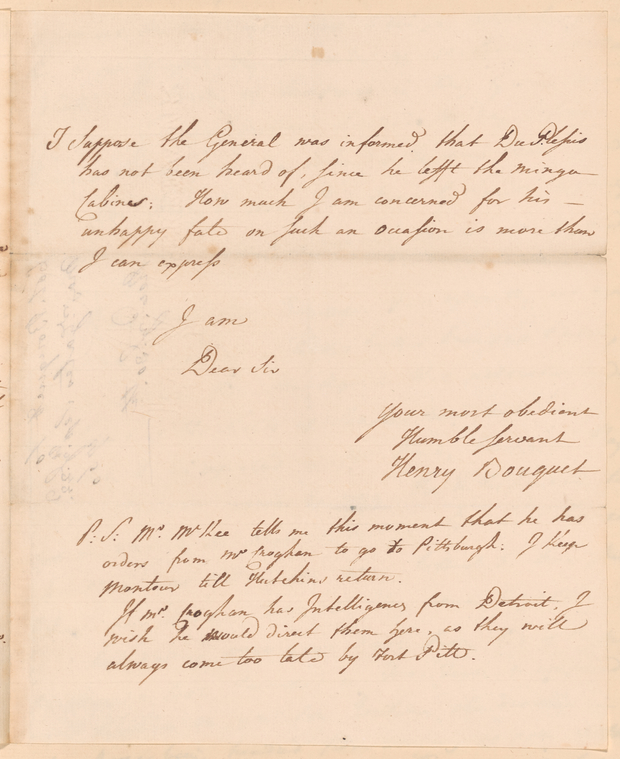 I Suppose the General was informed that Du Plesis
has not been heard of, since he lefft the Mingu
Cabines; How much I am concerned for his —
unhappy fate on such an occasion is more than
I can express
I am
Dear Sir
Your most obedient
Humble Servant
Henry Bouquet
P. S: Mr. McKee tells me this moment that he has
orders from Mr Croghan to go to Pittsburgh: I keep
Montour till Hutchins return.
If Mr. Croghan has Intelligences from Detroit, I
wish he would direct them here, as they will
always come too late by Fort Pitt.